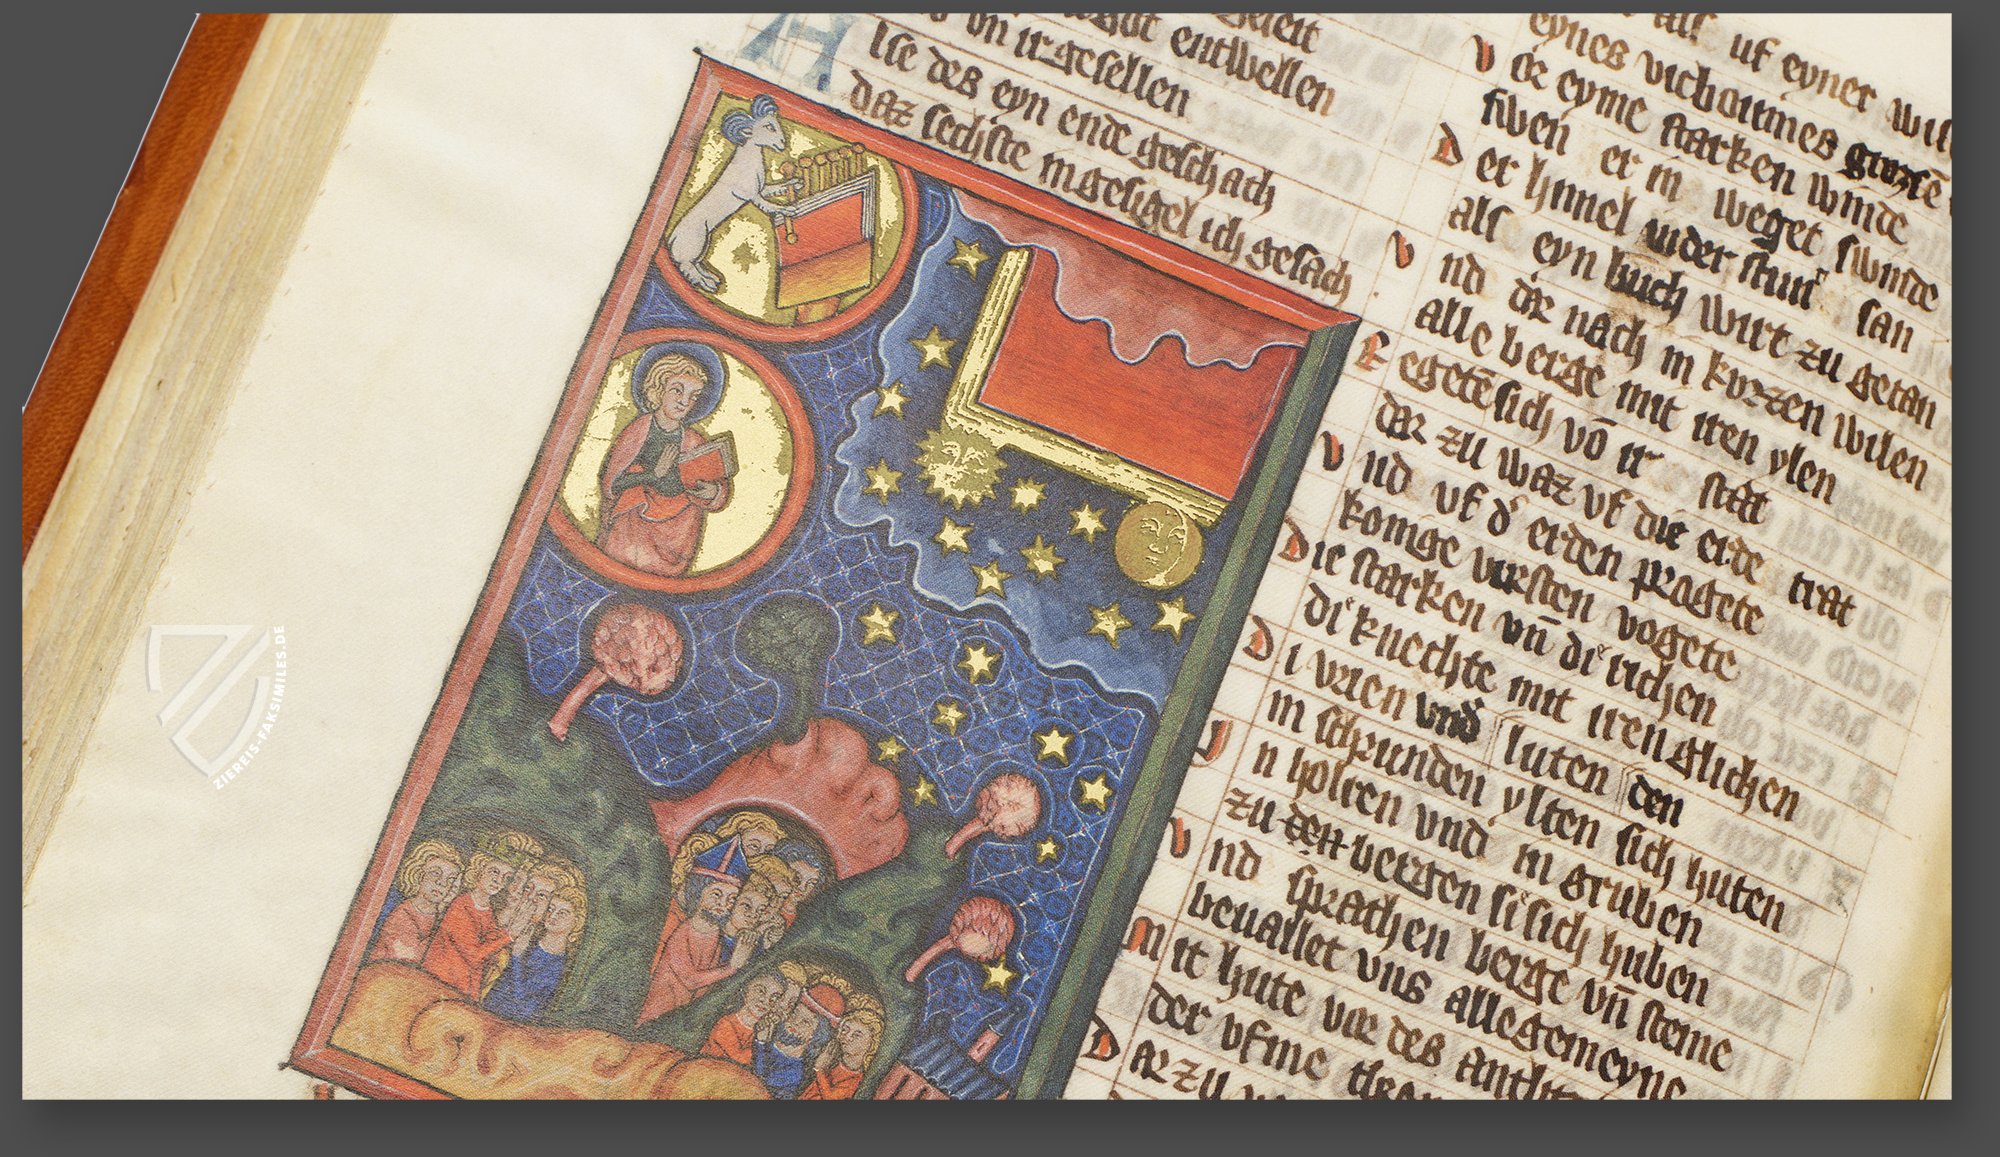 geleit
gut entwellen
vō vn irgesellen
Alse des eyn ende geschach
daz sechste ingesigel ich gesach
als uf eyner
eynes vicboumes
or eyme starken winde
siben er in weget swinde
er himel wider stunt san
als eyn buch wirt zu getan
nd dar nach in kurzen wilen
alle berge mit iren ylen
Regetē sich vō ir stat
dar zu waz vf die erde trat
Vnd vf d' erden pragete
konige vursten vogete
Die starken vn̄ di richen
di knechte mit iren glichen
Di vrien vnd luten den
in schrunden ylten sich huten
n holren vnd in gruben
zu den bergen si sich huben
Vnd sprachen berge vn̄ steine
beuallet vns allegemeyne
Mit hute vor des
der vfme
Darzu
ZIEREIS-FAKSIMILES.DE